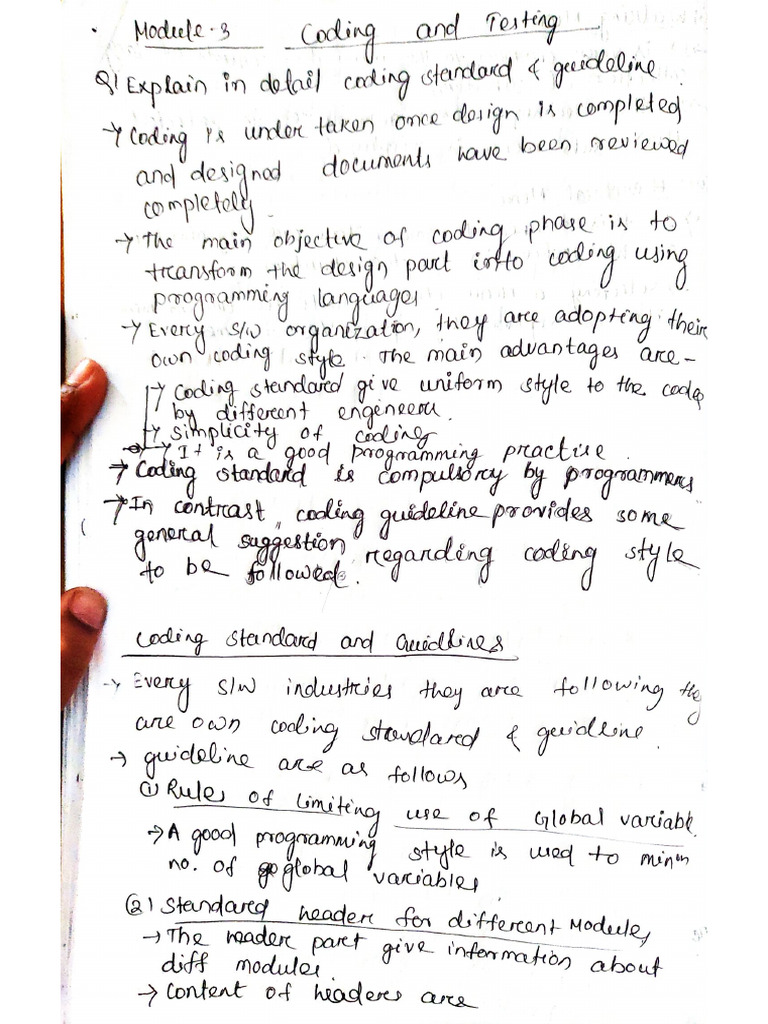 Module-3 Coding and Testing
Q1 Explain in detail coding standard & guideline.
→ Coding is under taken once design is completed
and designed documents have been reviewed
completely.
→ The main objective of coding phase is to
transform the design part into coding using
programming languages
→ Every s/w organization, they are adopting their
own coding style. The main advantages are -
→ Coding standard give uniform style to the codes
by different engineers.
→ Simplicity of coding
→ It is a good programming practise.
→ Coding standard is compulsory by programmers
→ In contrast, coding guideline provides some
general suggestion regarding coding style
to be followed.
Coding Standard and Guidlines
→ Every s/w industries they are following they
are own coding standard & guidline.
→ guideline are as follows
① Rules of limiting use of Global variable
→ A good programming style is used to minm
no. of global variables
② Standared header for different Modules
→ The header part give information about
diff modules.
→ Content of headers are